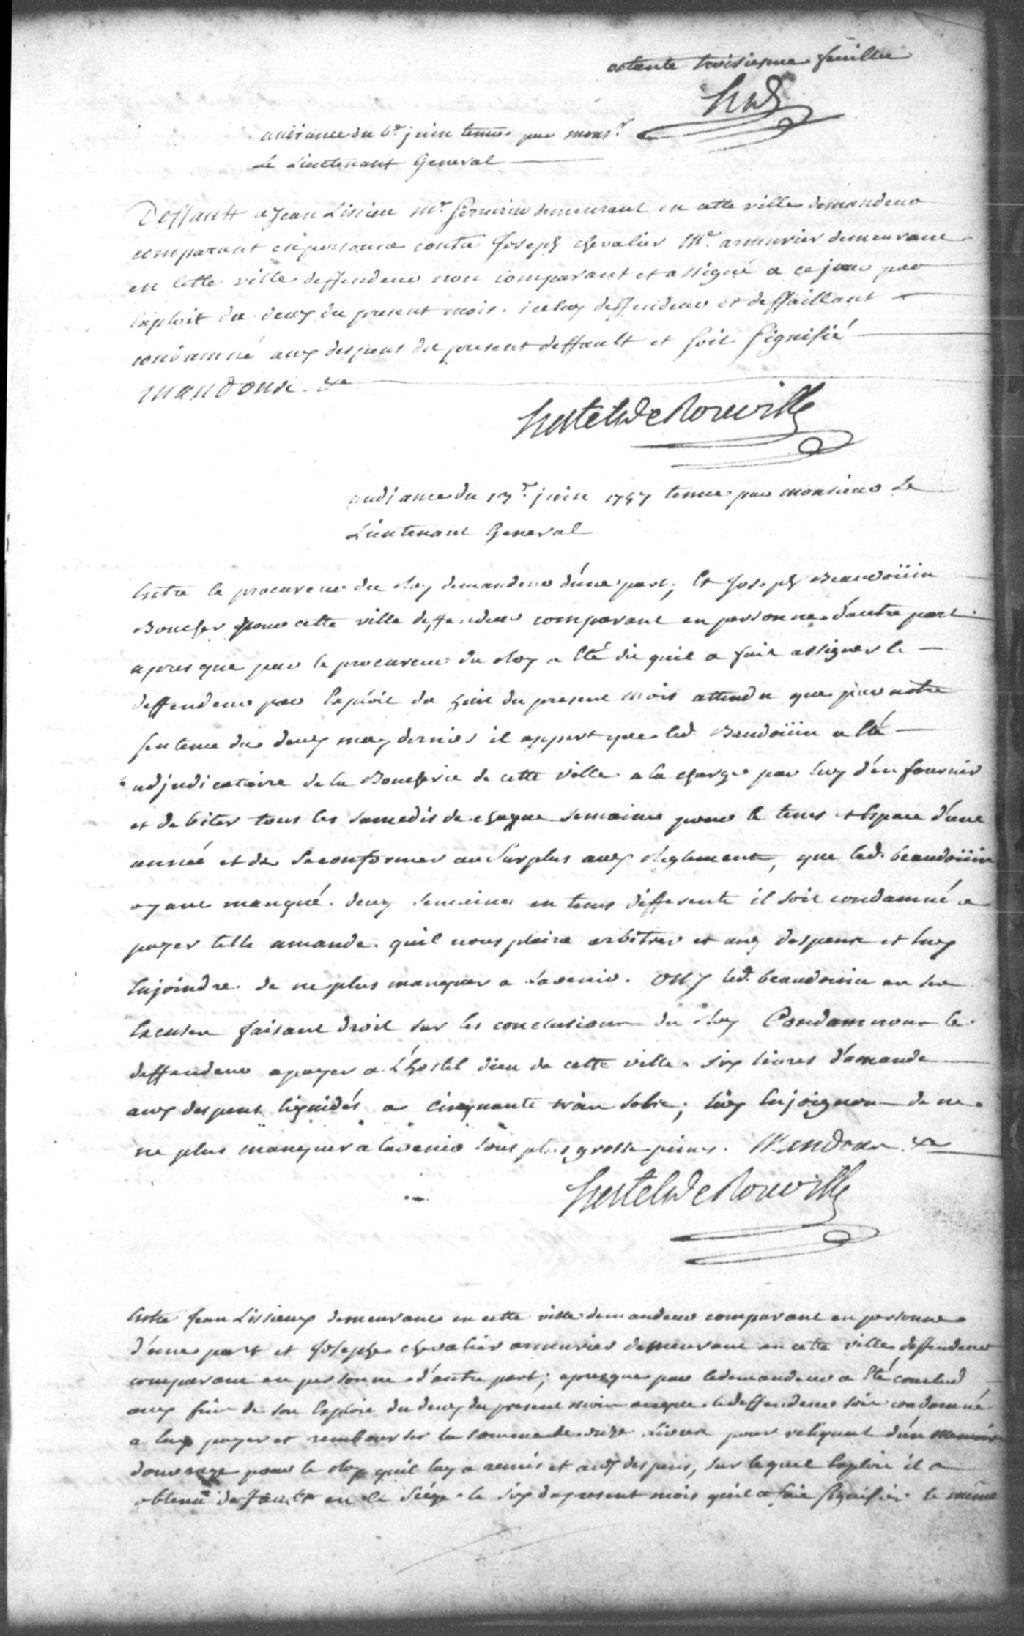 octente troisiesme feuillet
HsdR
audiance du 6e juin tenue par monsr
Le Lieutenant General
Deffautt a Jean Lisieu Mr demeurant en cette ville demandeur
comparant en personne contre Joseph chevalier Mr armurier demeurant
en cette ville deffendeur non comparant et assigné a ce jour par
Exploit du deux du present mois. iceluy deffendeur et deffaillant
condamné aux despens du present deffault et soit signifié
Mandons &a
Hertel de Rouville
audiance du 13e juin 1757 tenue par monsieur Le
Lieutenant General
Entre le procureur du Roy demandeur d'une part, Et Joseph Beaudoüin
Boucher pour cette ville deffendeur comparant en personne d'autre part
apres que par le procureur du Roy a Eté dit quil a fait assigner le
deffendeur par Exploit du huit du present mois attendu que par notre
sentence du deux may dernier il appert que led. Baudoüin a Eté
adjudicataire de la Boucherie de cette ville a la charge par luy d'en fournir
et debiter tous les samedis de chaque semaine pour le tems et Espace d'une
année et de se conformer au surplus aux Reglement, que led. beaudoüin
ayant manqué deux semaines en tems differents il soit condamné a
payer telle amande quil nous plaira arbitrer et aux despens et luy
Enjoindre de ne plus manquer a Lavenir. OUY led. beaudouin en ses
Excuses faisant droit sur les conclusions du Roy Condamnons le
deffendeur a payer a L'hostel dieu de cette ville six livres d'amande
aux despens liquidés a cinquante trois sols; luy Enjoignons de ne
ne plus manquer a lavenir sous plus grosse peines. Mandons &a
Hertel de Rouville
Entre Jean Lisieux demeurant en cette ville demandeur comparant en personne
d'une part et Joseph chevalier armurier demeurant en cette ville deffendeur
comparant en personne d'autre part; apresque par le demandeur a Eté conclud
aux fins de son Exploit du deux du present mois aceque le deffendeur soit condamné
a luy payer et rembourser la somme de onze Livres pour reliquat d'un memoire
d'ouvrage pour le Roy quil luy a remis et aux despens, sur lequel Exploit il a
obtenu default en ce Siége le six du present mois quil a fait signifier le même